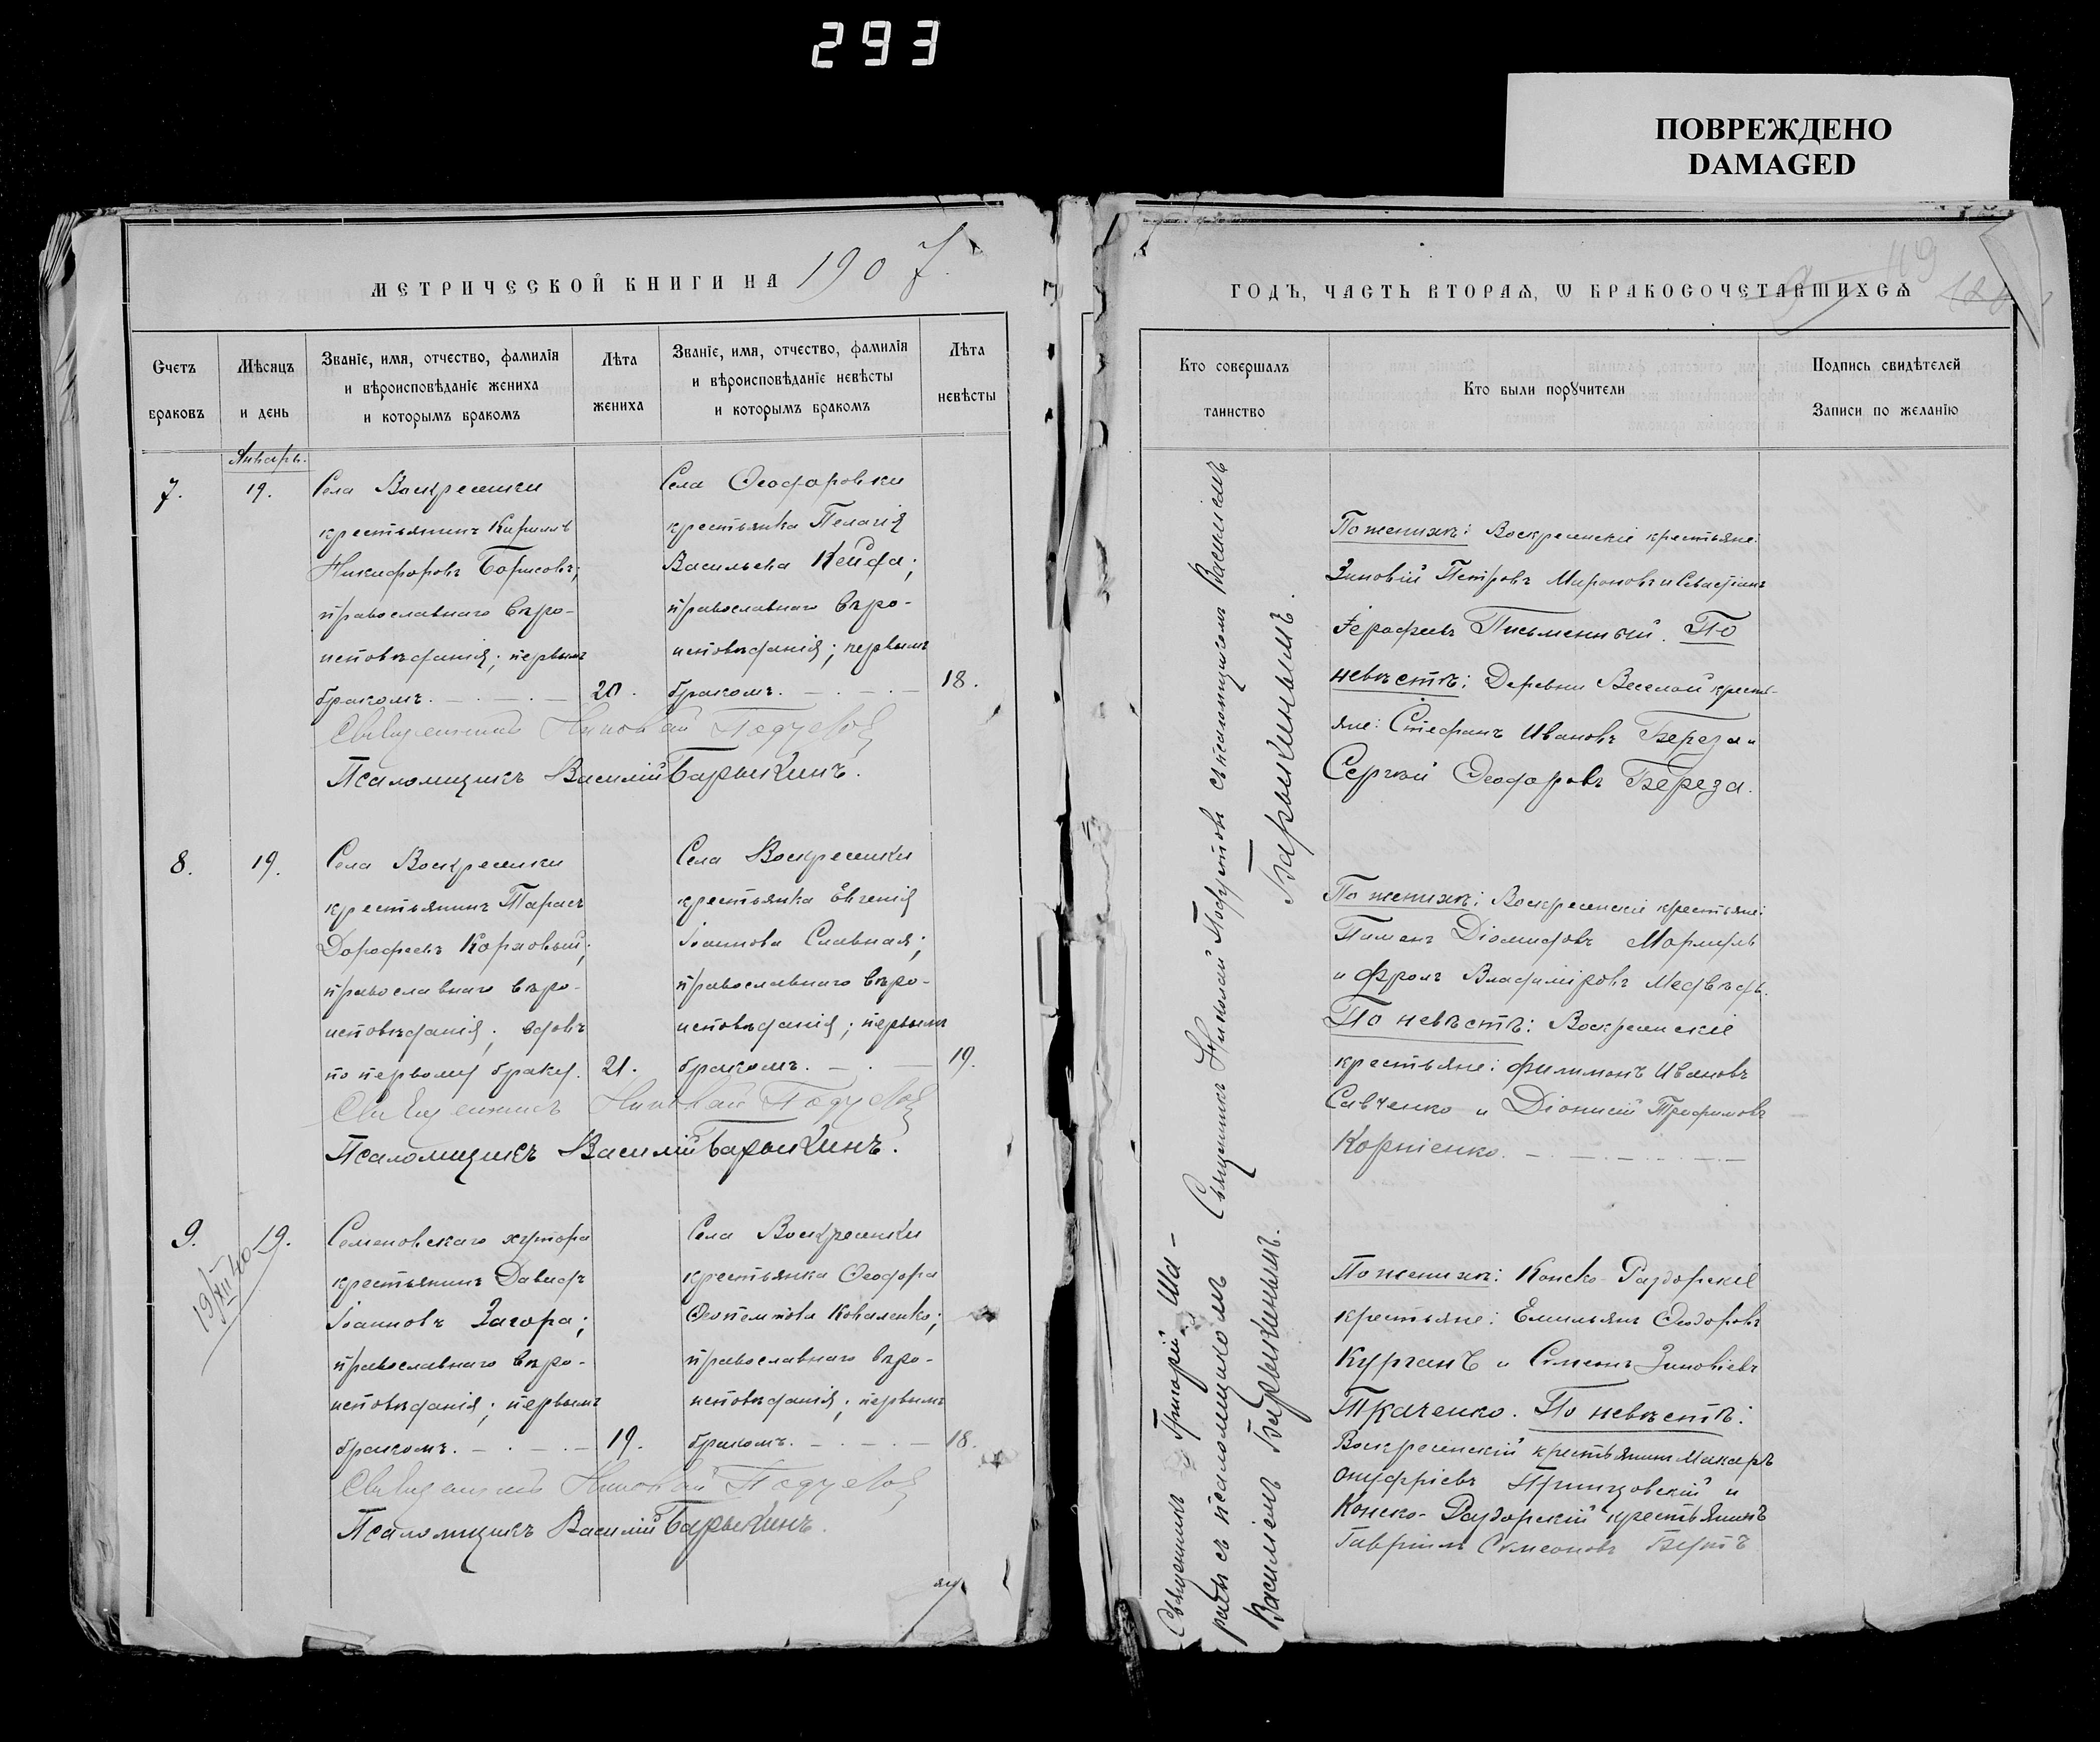 293
ПОВРЕЖДЕНО
DAMAGED
МЕТРИЧЕСКОЙ КНИГИ НА 1907
Счетъ браковъ
Мѣсяцъ и день
Званіе, имя, отчество, фамилія
и вѣроисповѣданіе жениха
и которымъ бракомъ
Лѣта жениха
Званіе, имя, отчество, фамилія
и вѣроисповѣданіе невѣсты
и которымъ бракомъ
Лѣта невѣсты
Январь.
7.
19.
Села Воскресенки
крестьянинъ Кириллъ
Никифоровъ Борисовъ;
православнаго вѣро-
исповѣданія; первымъ
бракомъ.
20.
Села Ѳеодоровки
крестьянка Пелагія
Васильева Кейда;
православнаго вѣро-
исповѣданія; первымъ
бракомъ.
18.
Священникъ Николай
Псаломщикъ Василій Барыкинъ.
8.
19.
Села Воскресенки
крестьянинъ Тарасъ
Дороѳеевъ
православнаго вѣро-
исповѣданія; вдовъ
по первому браку.
21.
Села Воскресенки
крестьянка Евгенія
Іоаннова Славная;
православнаго вѣро-
исповѣданія; первымъ
бракомъ.
19.
Священникъ Николай
Псаломщикъ Василій Барыкинъ.
9.
19.
19/XII 40
Семеновскаго хутора
крестьянинъ Давидъ
Іоанновъ Загора;
православнаго вѣро-
исповѣданія; первымъ
бракомъ.
19.
Села Воскресенки
крестьянка Ѳеодора
Ѳеопемптова Коваленко;
православнаго вѣро-
исповѣданія; первымъ
бракомъ.
18.
Священникъ Николай
Псаломщикъ Василій Барыкинъ.
119
ГОДЪ, ЧАСТЬ ВТОРАЯ, Ѡ БРАКОСОЧЕТАВШИХСЯ
Кто совершалъ таинство
Кто были порꙋчители
Подпись свидѣтелей
Записи по желанію
Священникъ Григорій Ша-
съ псаломщикомъ
Василіемъ Барыкинымъ.
Священникъ Николай съ псаломщикомъ Василіемъ
Барыкинымъ.
По женихѣ: Воскресенскіе крестьяне:
Зиновій Петровъ Мироновъ и Севастіанъ
Іероѳеевъ Письменный. По
невѣстѣ: Деревни Веселой кресть-
яне: Стефанъ Ивановъ Береза и
Сергѣй Ѳеодоровъ Береза.
По женихѣ: Воскресенскіе крестьяне:
Пименъ Діомидовъ
и Фролъ Владиміровъ Медвѣдь.
По невѣстѣ: Воскресенскіе
крестьяне: Филимонъ Ивановъ
Савченко и Діонисій Трофимовъ
Корніенко.
По женихѣ: Конско-Раздорскіе
крестьяне: Емильянъ Ѳеодоровъ
Курганъ и Семенъ Зиновіевъ
Ткаченко. По невѣстѣ:
Воскресенскій крестьянинъ Макаръ
Онуфріевъ и
Конско-Раздорскій крестьянинъ
Гавріилъ Симеоновъ